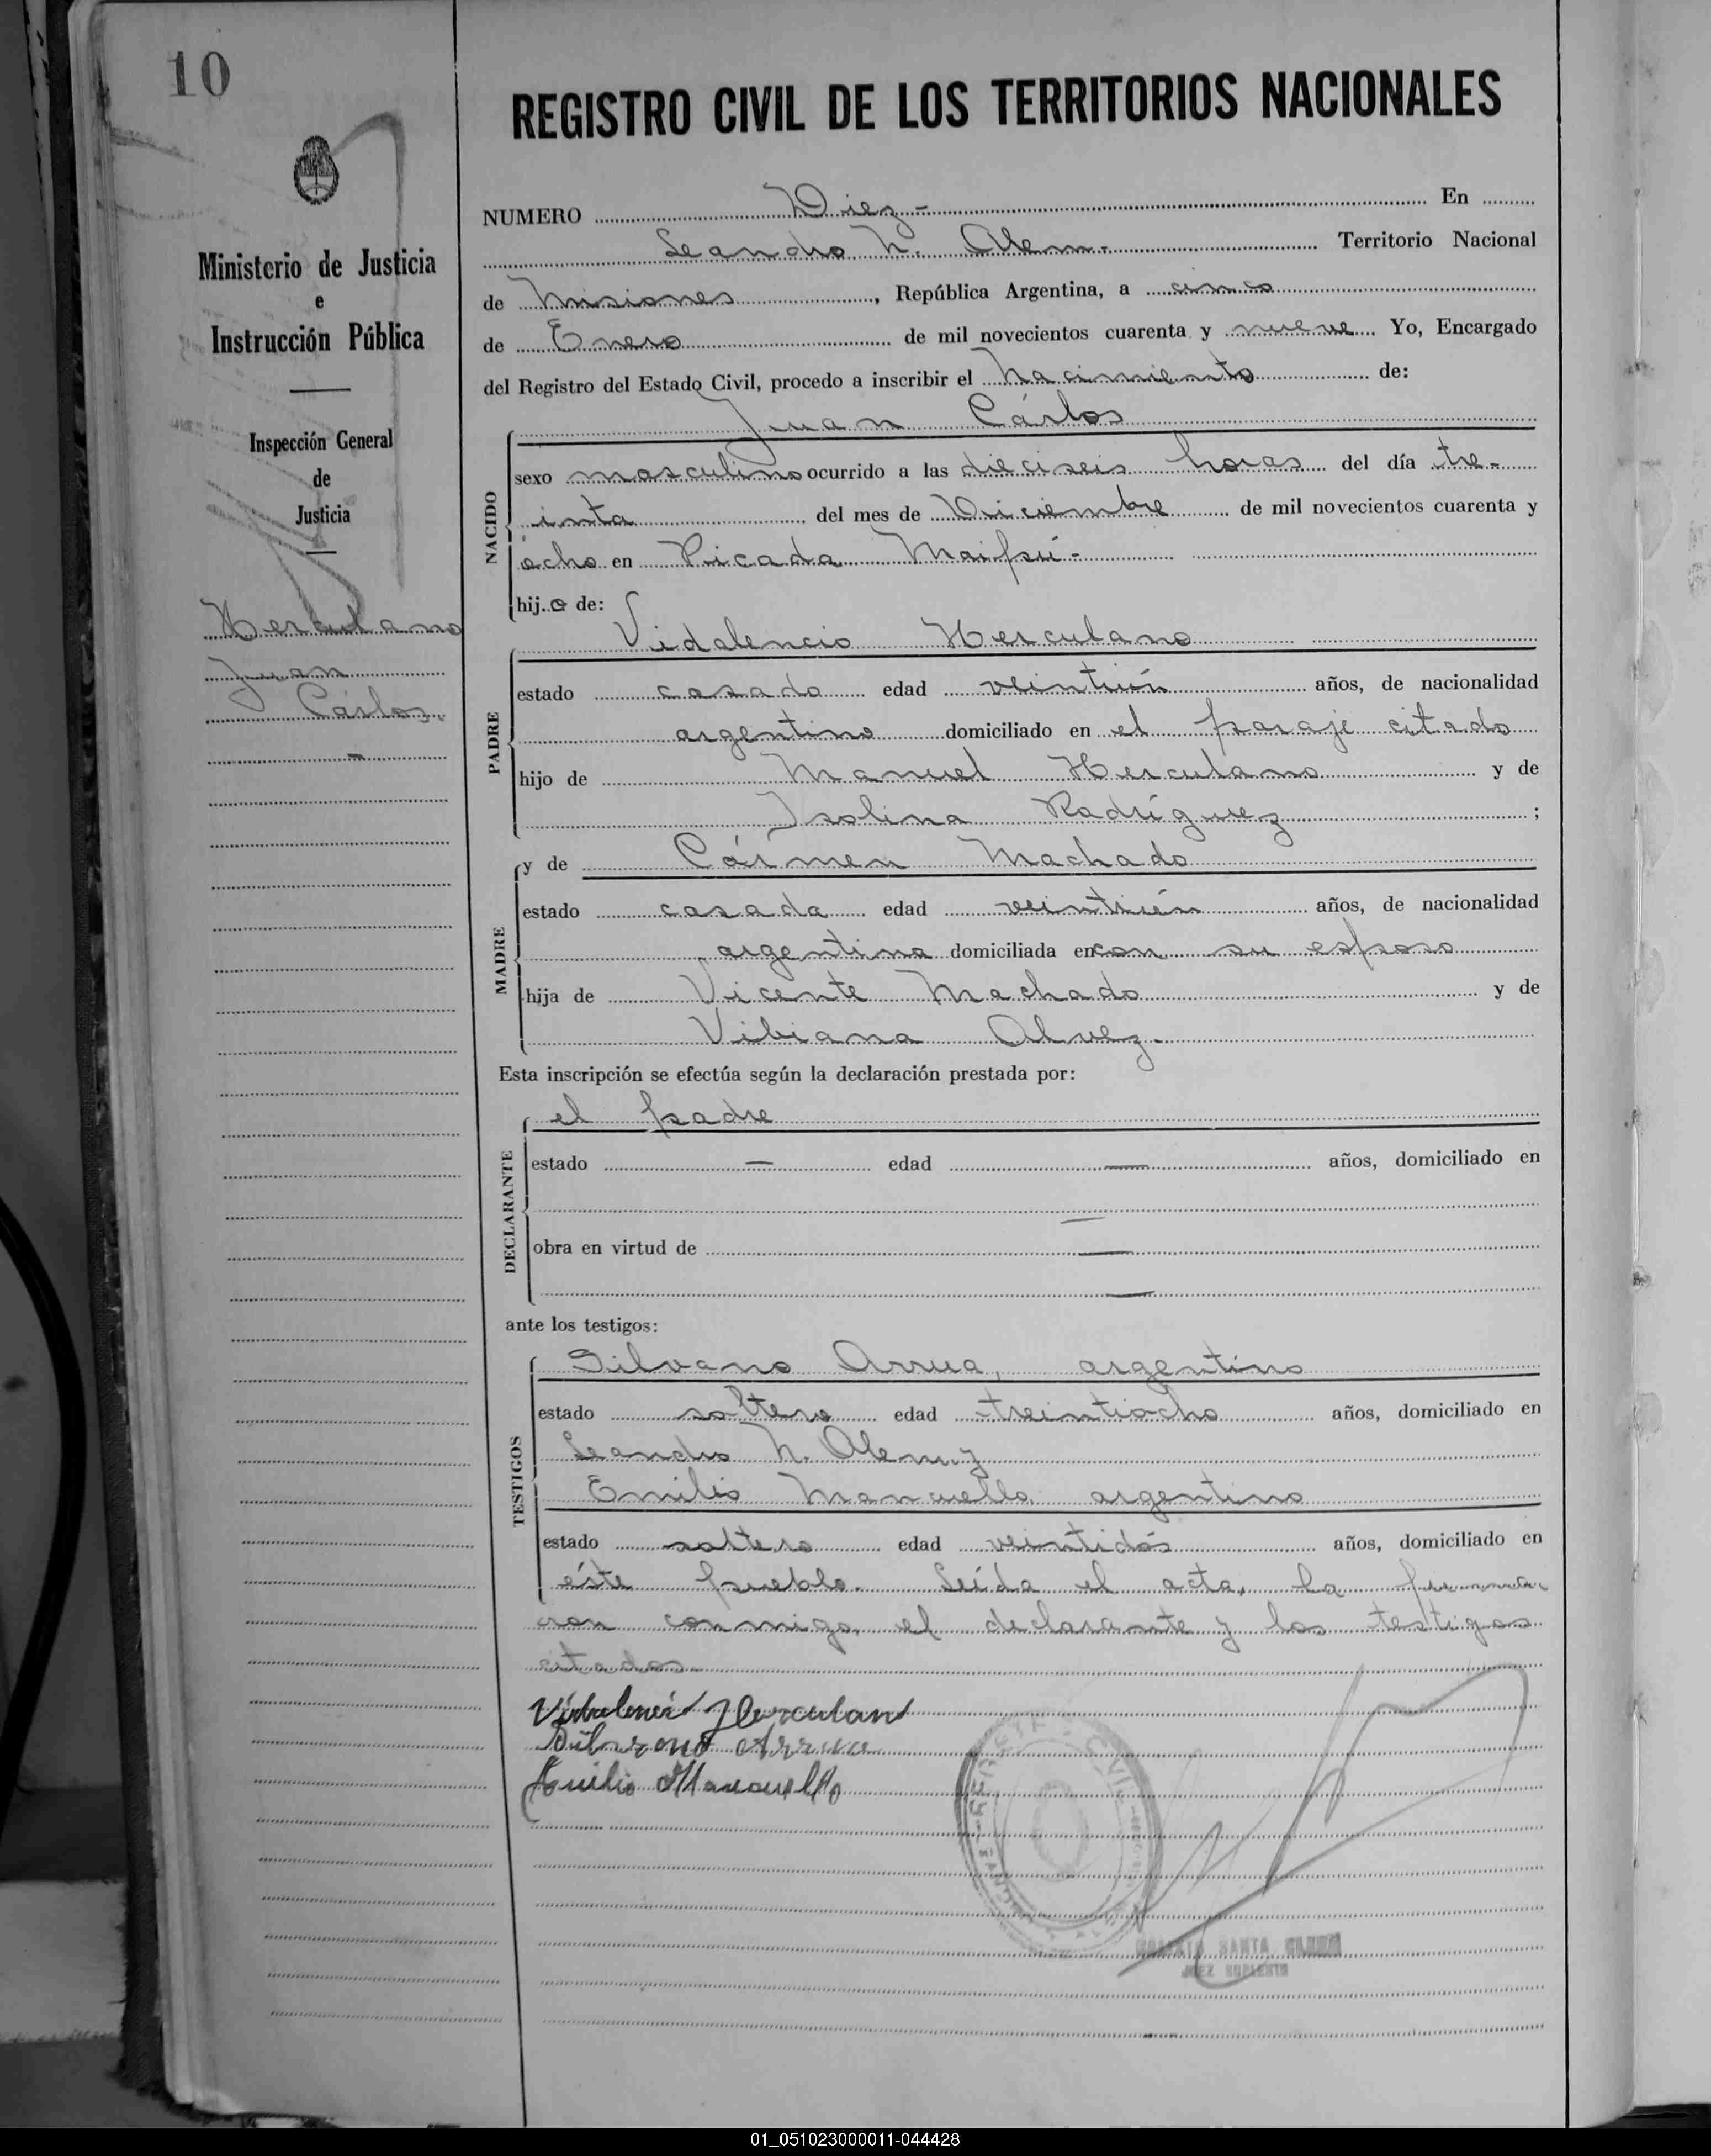 10
REGISTRO CIVIL DE LOS TERRITORIOS NACIONALES
Ministerio de Justicia
e
Instrucción Pública
Inspección General
de
Justicia
Herculano
Juan
Cárlos.
-
NUMERO Diez- En
Leandro N. Alem.- Territorio Nacional
de Misiones, República Argentina, a cinco
de Enero de mil novecientos cuarenta y nueve Yo, Encargado
del Registro del Estado Civil, procedo a inscribir el Nacimiento de:
Juan Cárlos
NACIDO
sexo masculino ocurrido a las dieciseis horas del día tre-
inta del mes de Diciembre de mil novecientos cuarenta y
ocho en Picada Maipú-
hijo de:
Vidalencio Herculano
PADRE
estado casado edad veintiún años, de nacionalidad
argentino domiciliado en el paraje citado
hijo de Manuel Herculano y de
Isolina Rodríguez ;
y de Cármen Machado
MADRE
estado casada edad veintiún años, de nacionalidad
argentina domiciliada en con su esposo
hija de Vicente Machado y de
Vibiana Alvez.
Esta inscripción se efectúa según la declaración prestada por:
el padre
DECLARANTE
estado — edad — años, domiciliado en
—
obra en virtud de —
—
ante los testigos:
Silvano Arrua, argentino
TESTIGOS
estado soltero edad treintiocho años, domiciliado en
Leandro N. Alem y
Emilio Manuello, argentino
estado soltero edad veintidós años, domiciliado en
éste pueblo. Leída el acta, la firma-
ron conmigo, el declarante y los testigos
citados.
Herculan
Silvano Arrua
Emilio Manuello
CIVIL
SANTA
JUEZ SUPLENTE
01_051023000011-044428